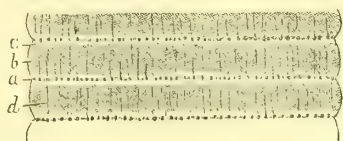 c
b
a
d